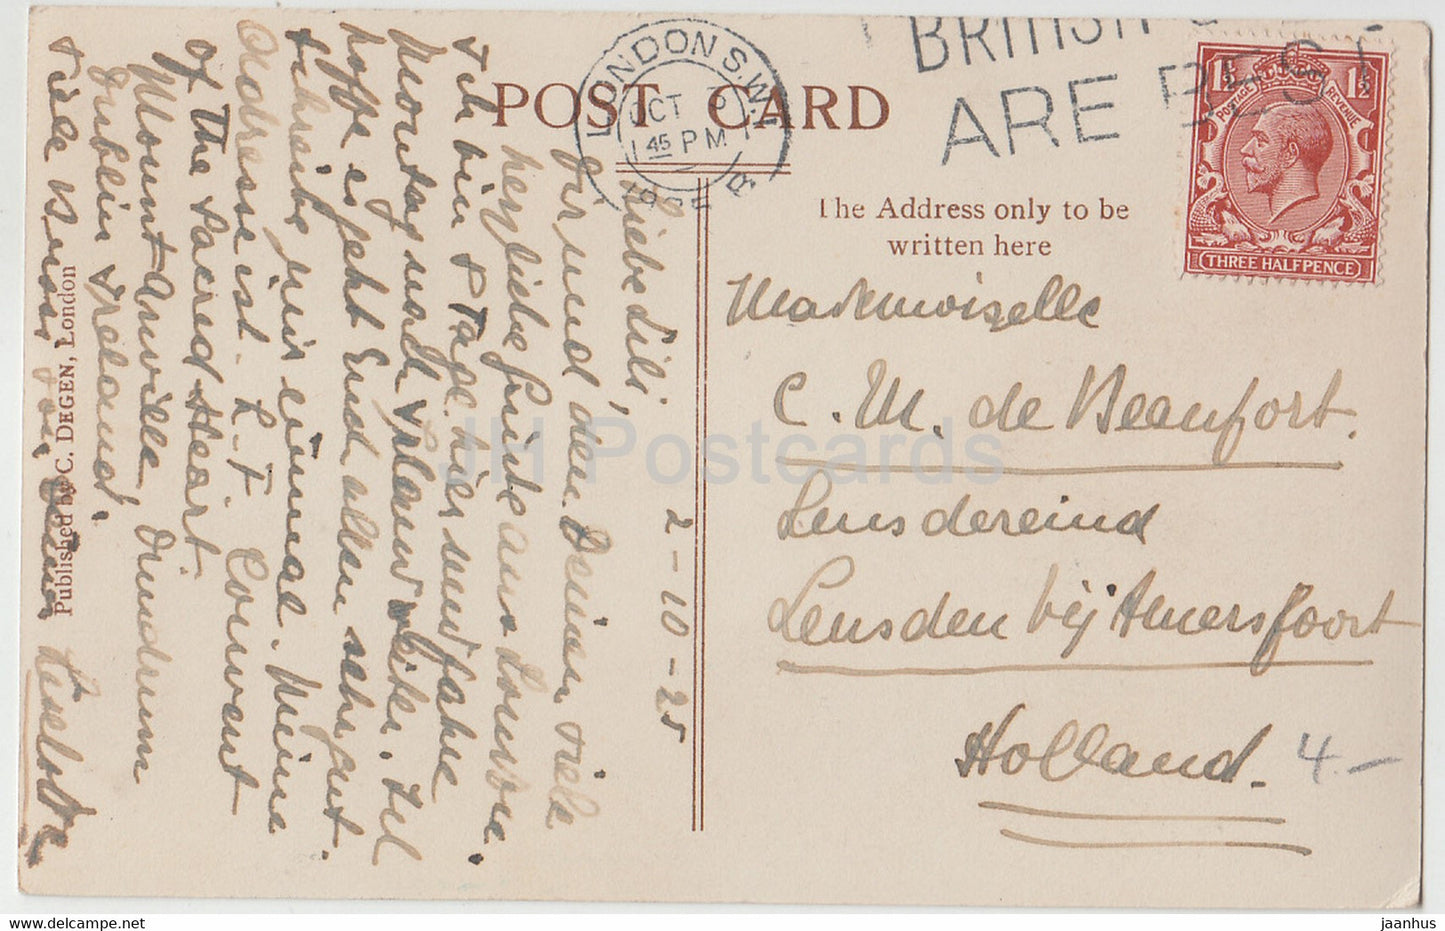 POST CARD
LONDON S.W.1
OCT
45 PM
BRITISH
ARE BEST
1½ 1½
POSTAGE REVENUE
THREE HALFPENCE
The Address only to be
written here
Mademoiselle
C. M. de Beaufort.
Leusdereind
Leusden bij Amersfoort
Holland.
4.-
2-10-25
Liebe Lili,
Dir und den Deinen viele
herzliche Grüße aus London.
Ich bin 8 Tage hier und fahre
Montag nach Irland weiter. Ich
hoffe es geht Euch allen sehr gut.
Schreibe mir einmal. Meine
Adresse ist. L. F. Convent
of The Sacred Heart.
Mount-Anville, Dundrum
Dublin Ireland.
Viele Liselotte
Published by C. DEGEN, London
JH Postcards
jaanhus